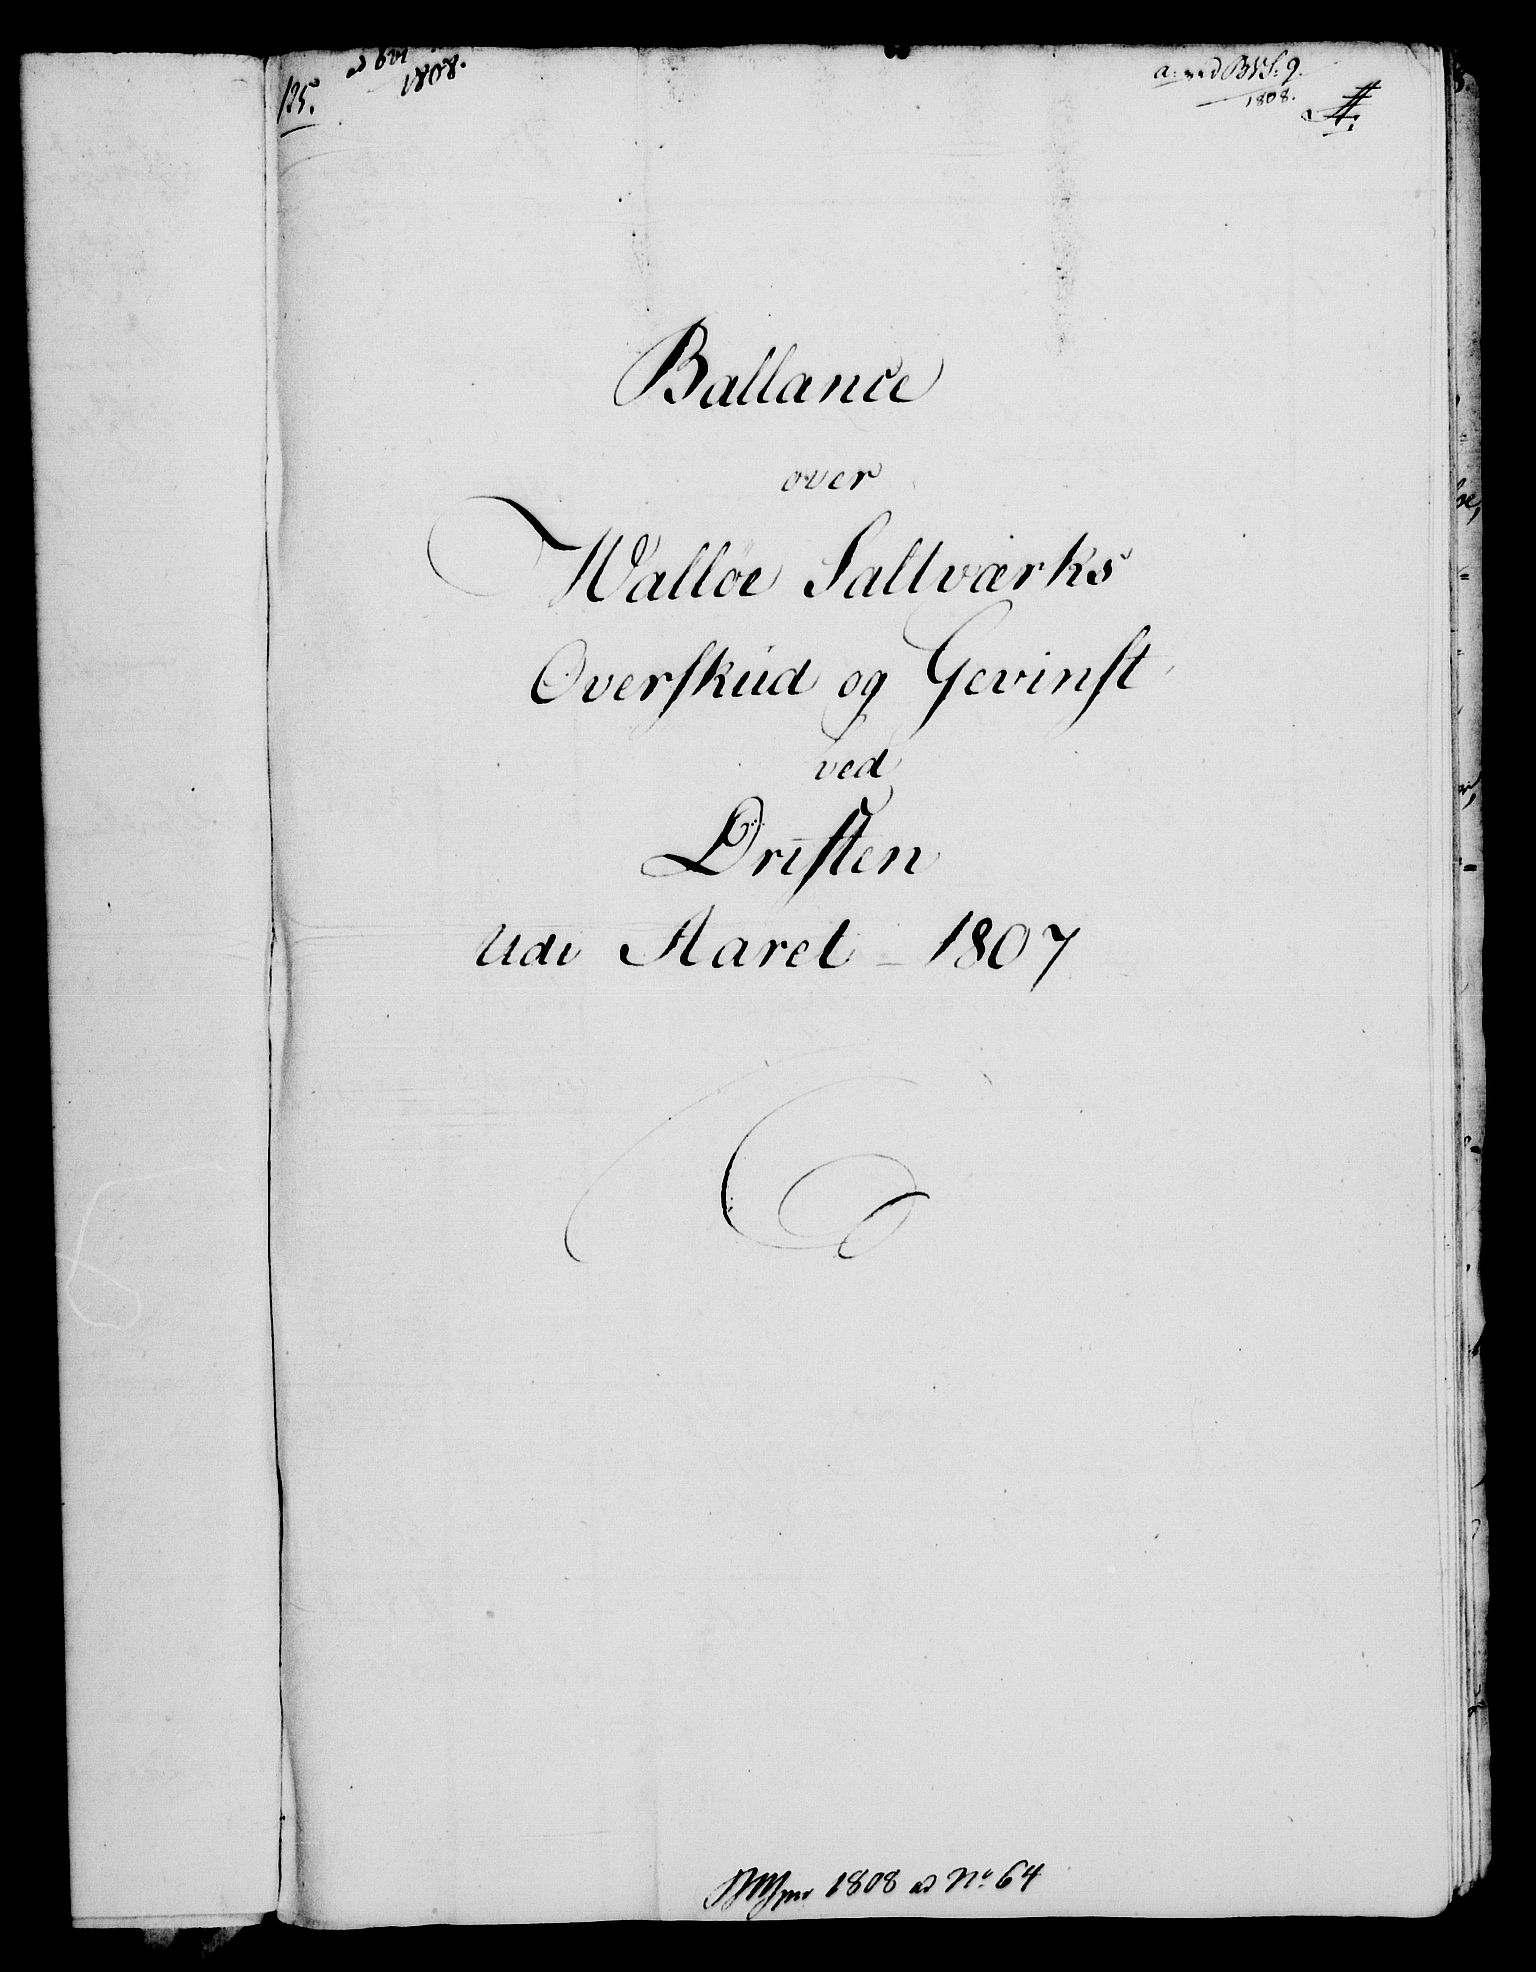 125.
1808.
1808.
A:
Ballance
over
Walløe Saltværks
Overskud og Gevinst
ved
Driften
udi Aaret 1807
1808 ad No 64